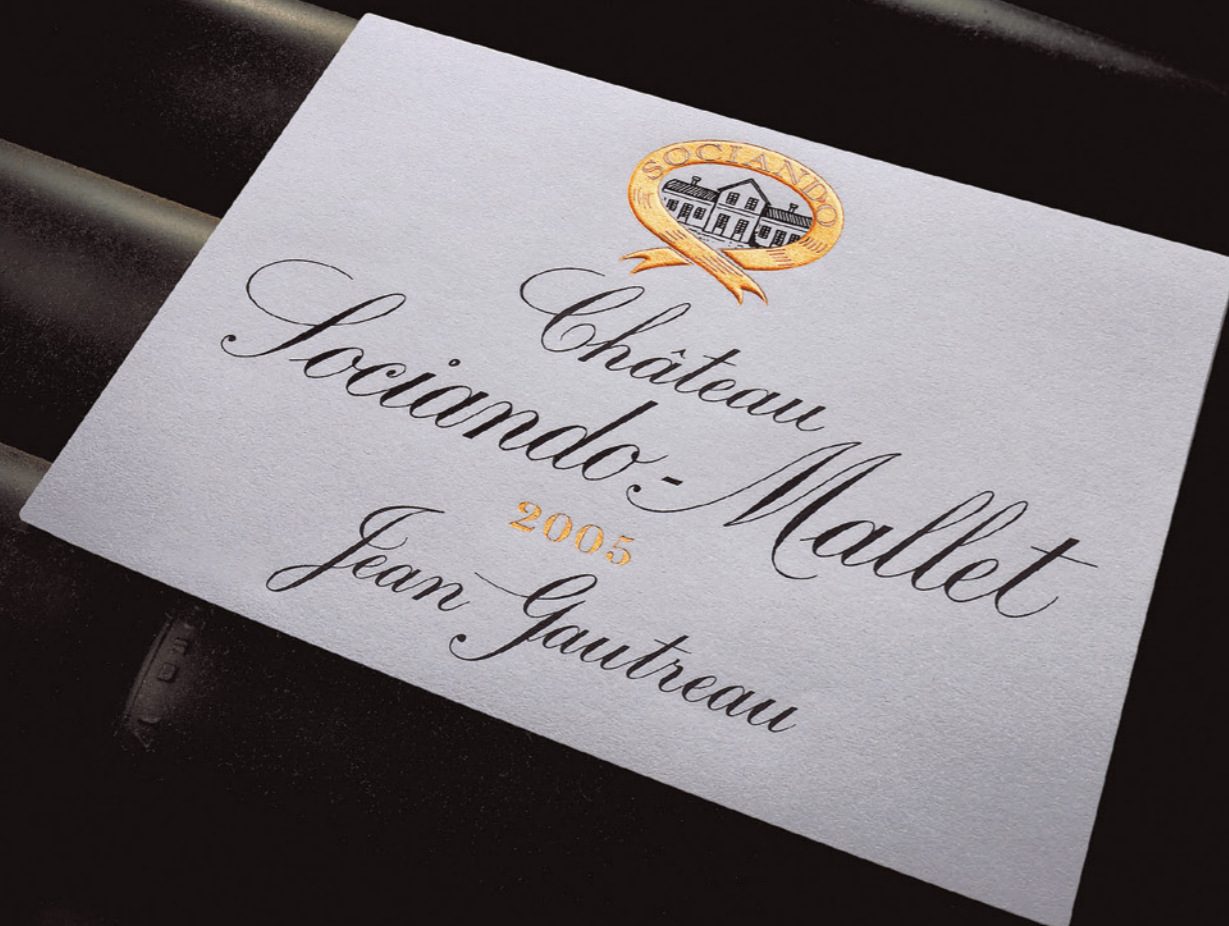 SOCIANDO
Château
Sociando-Mallet
2005
Jean Gautreau